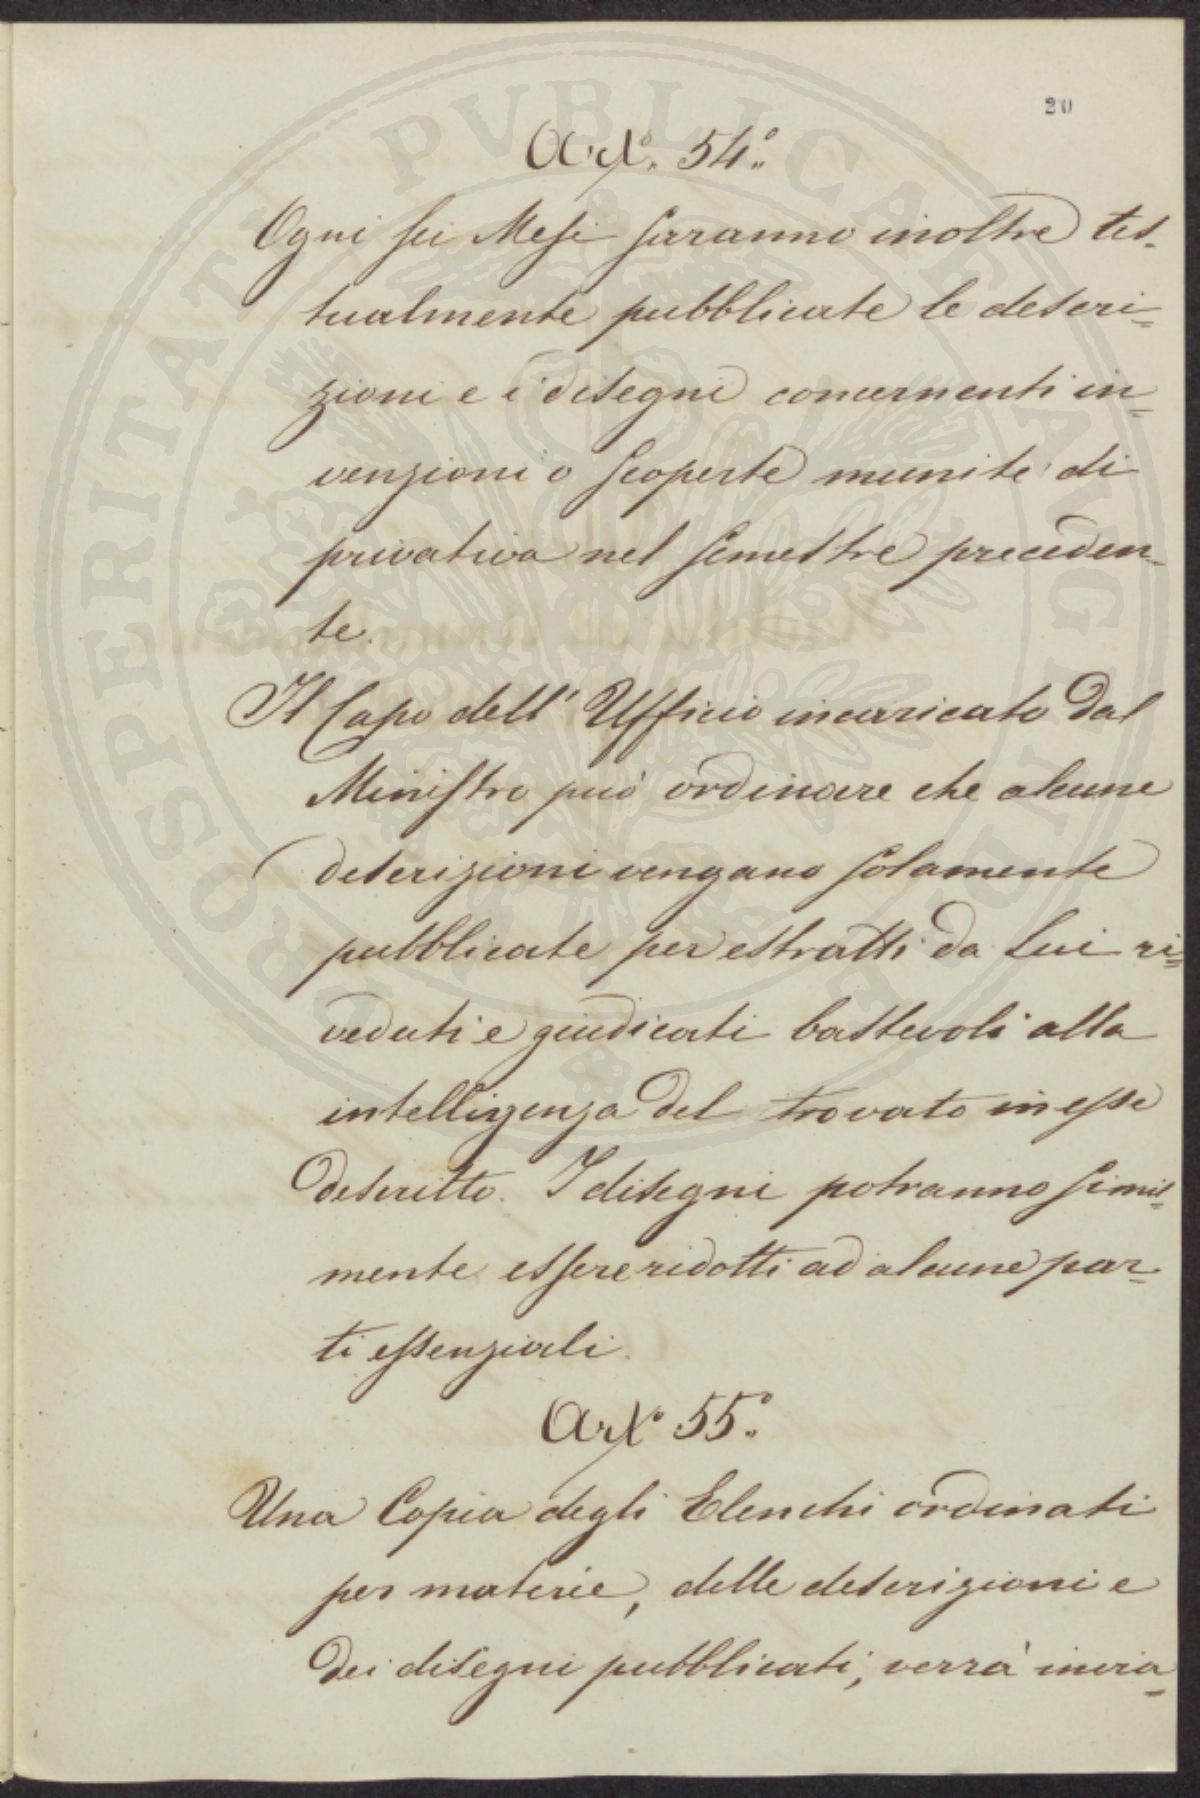 20
Art.° 54.°
Ogni sei Mesi saranno inoltre tes-
tualmente pubblicate le descri-
zioni e i disegni concernenti in-
venzioni o scoperte munite di
privativa nel semestre preceden-
te.
Il Capo dell'Ufficio incaricato dal
Ministro può ordinare che alcune
descrizioni vengano solamente
pubblicate per estratti da Lui ri-
veduti e giudicati bastevoli alla
intelligenza del trovato in esse
descritto. I disegni potranno simil-
mente essere ridotti ad alcune par-
ti essenziali.
Art.° 55.°
Una Copia degli Elenchi ordinati
per materie, delle descrizioni e
dei disegni pubblicati, verrà invia-
PROSPERITATI PVBLICAE AVGENDAE